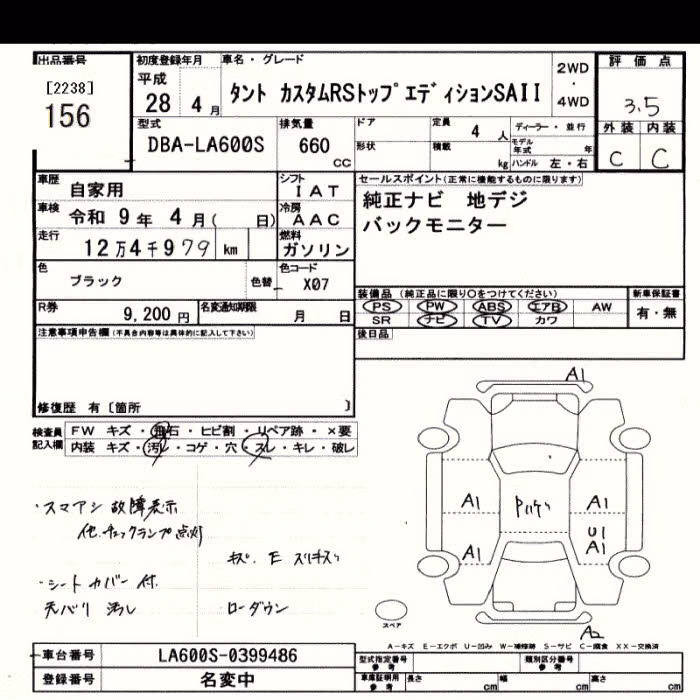 出品番号
[2238]
156
初度登録年月
平成
28 4 月
車名・グレード
タント カスタムRSトップエディションSAII
2WD
・
4WD
評価点
3.5
外装 内装
C C
型式
DBA-LA600S
排気量
660
CC
ドア
形状
定員
4 人
積載
kg
ディーラー・並行
モデル年式 年
ハンドル 左・右
車歴
自家用
シフト
IAT
車検 令和 9年 4月( 日)
冷房
AAC
走行
12万4千979 km
燃料
ガソリン
色
ブラック
色替
色コード
X07
R券
9,200 円
名変通知期限
月 日
セールスポイント(正常に機能するものに限ります)
純正ナビ 地デジ
バックモニター
装備品 (純正品に限り○をつけてください)
PS PW ABS エアB AW
SR ナビ TV カワ
新車保証書
有・無
後日品
注意事項申告欄(不具合内容等は具体的に記入して下さい)
修復歴 有〔箇所 〕
検査員記入欄
FW キズ・飛石・ヒビ割・リペア跡・×要
内装 キズ・汚レ・コゲ・穴・スレ・キレ・破レ
・スマアシ 故障表示
他.チェックランプ点灯
・シートカバー付
天バリ 汚レ
ローダウン
A1
A1
A1
A1
U1
A1
A2
スペア
A-キズ E-エクボ U-凹み W-補修跡 S-サビ C-腐食 XX-交換済
車台番号
LA600S-0399486
登録番号
名変中
型式指定番号
参考
類別区分番号
参考
車庫証明用
参考
長さ cm
幅 cm
高さ cm